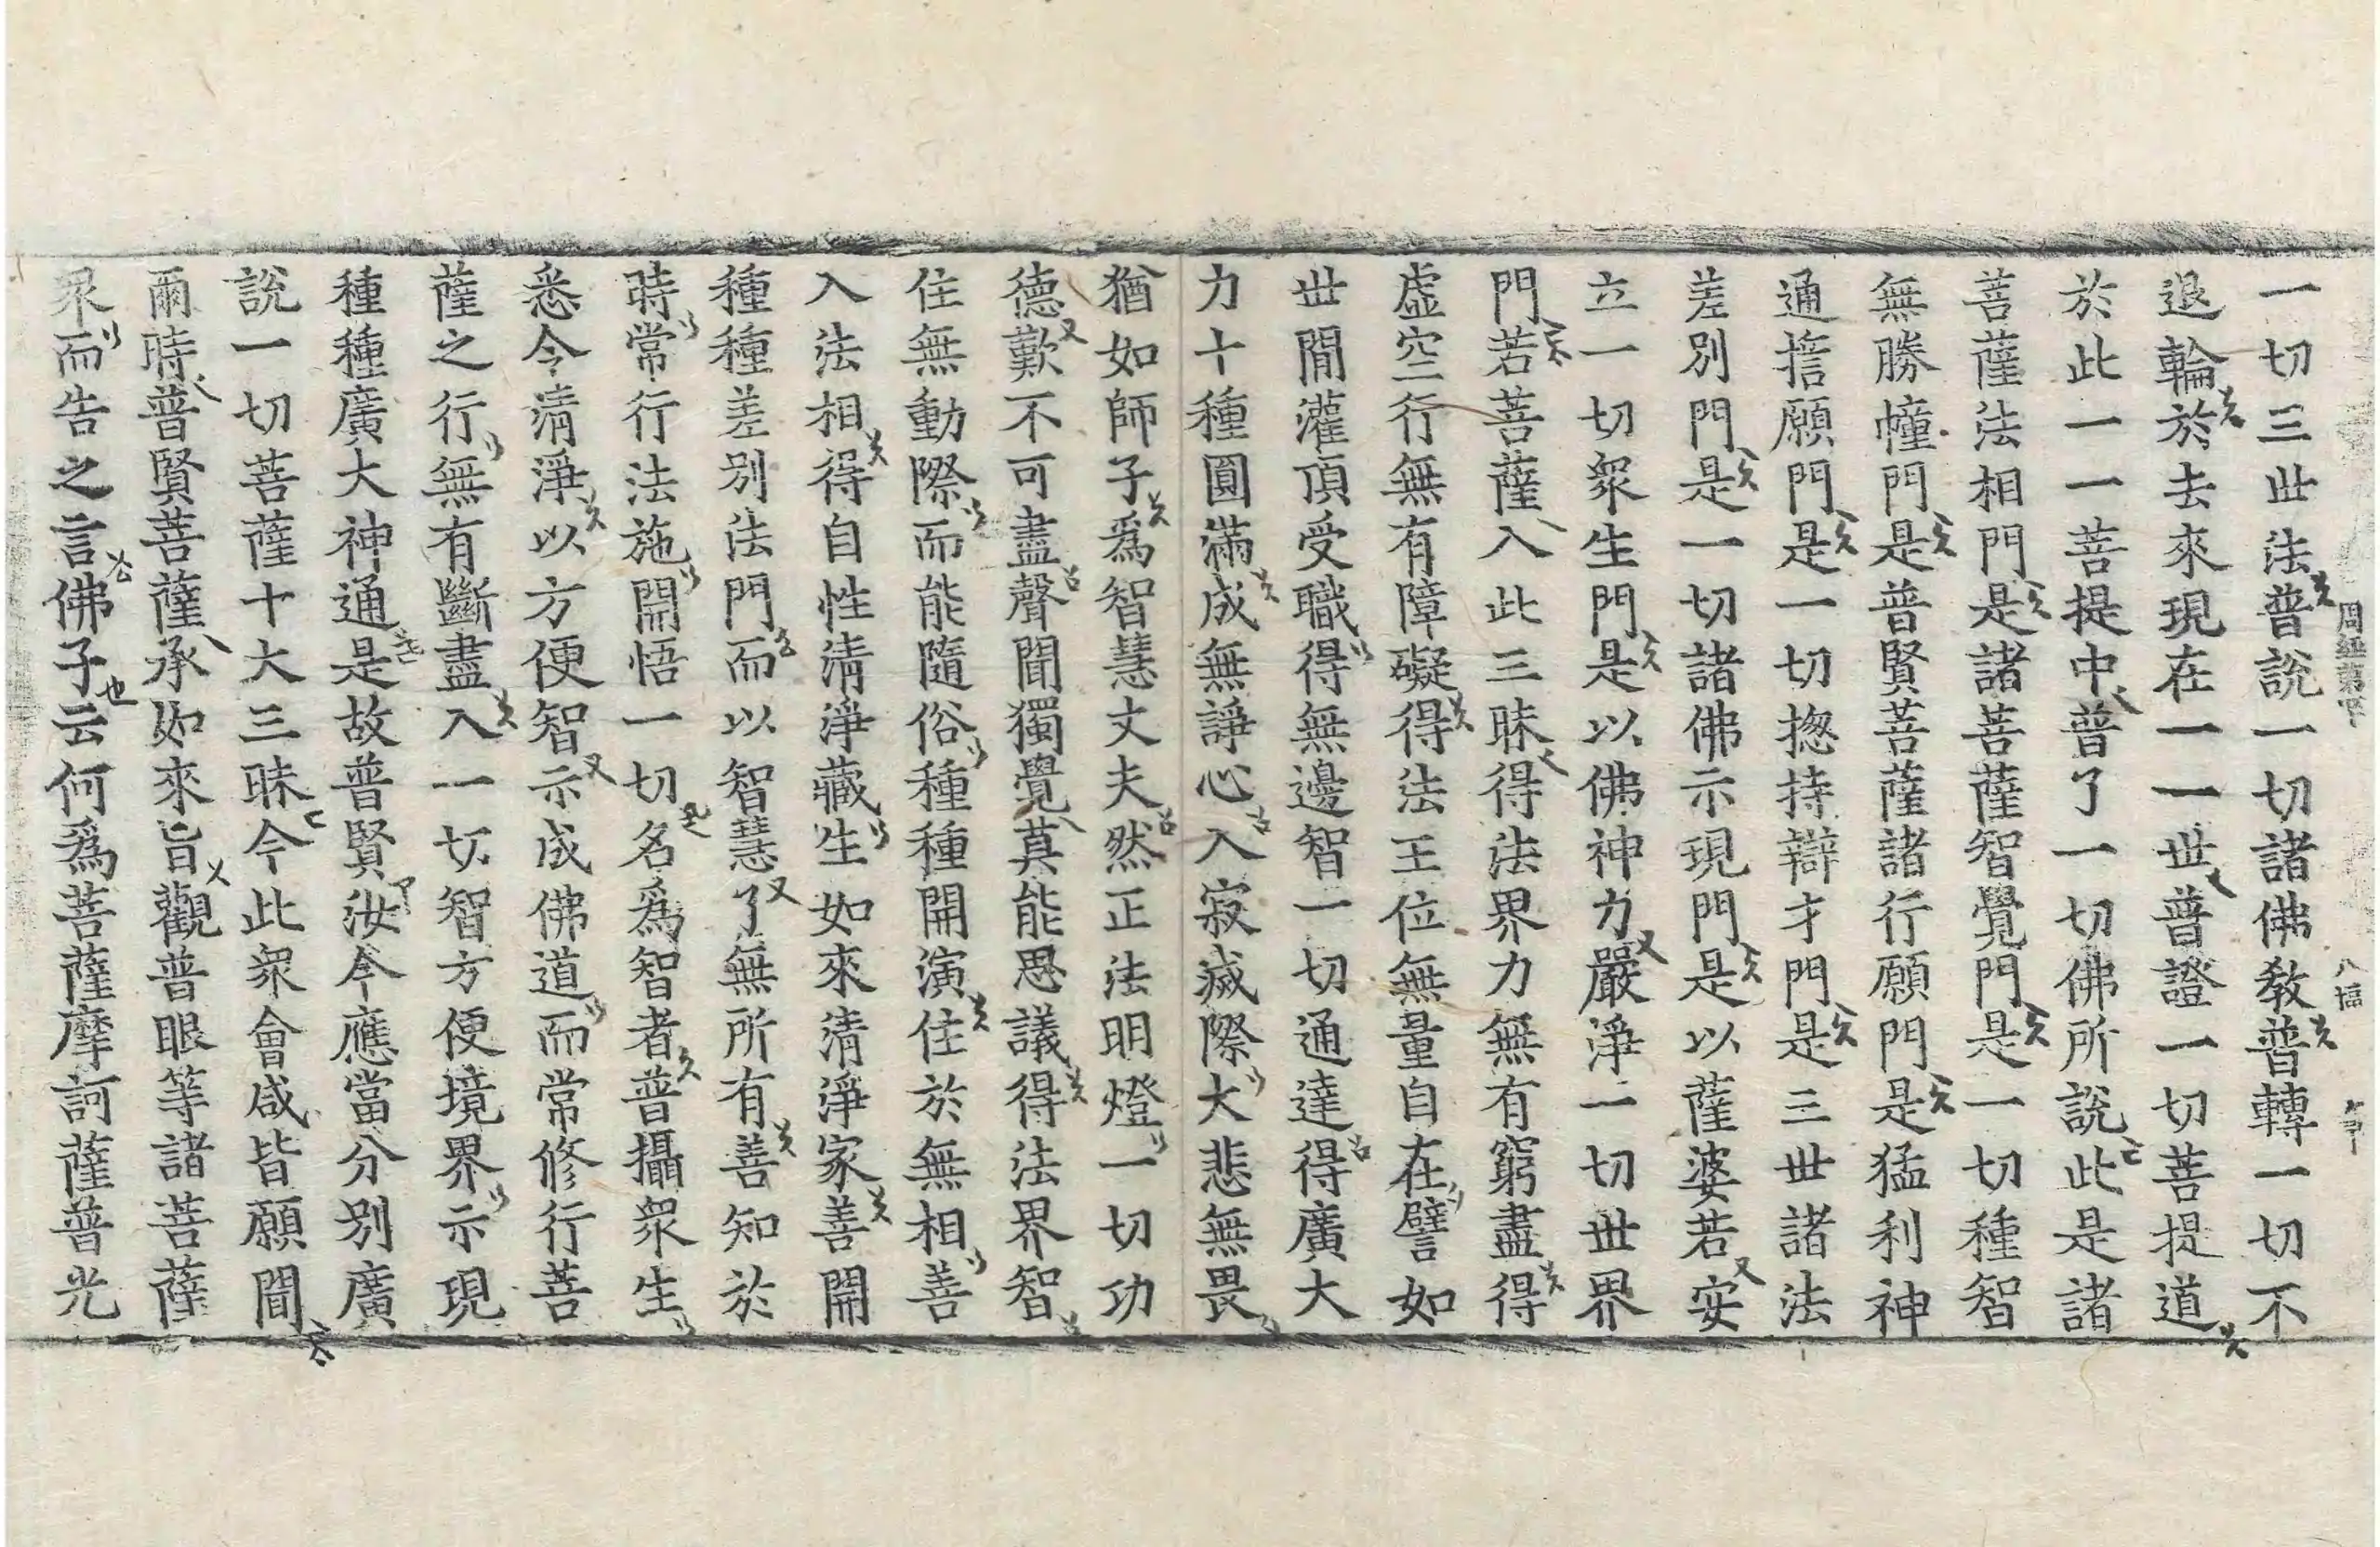 一切三世法普說一切諸佛教普轉一切不
退輪於去來現在一一世普證一切菩提道
於此一一菩提中普了一切佛所說此是諸
菩薩法相門是諸菩薩智覺門是一切種智
無勝幢門是普賢菩薩諸行願門是猛利神
通擔願門是一切揔持辯才門是三世諸法
差別門是一切諸佛示現門是以薩婆若安
立一切衆生門是以佛神力嚴淨一切世界
門若菩薩入此三昧得法界力無有窮盡得
虛空行無有障礙得法王位無量自在譬如
世閒灌頂受職得無邊智一切通達得廣大
力十種圓滿成無諍心入寂滅際大悲無畏
猶如師子爲智慧丈夫然正法明燈一切功
德歎不可盡聲聞獨覺莫能思議得法界智
住無動際而能隨俗種種開演住於無相善
入法相得自性淸淨藏生如來淸淨家善開
種種差別法門而以智慧了無所有善知於
時常行法施開悟一切名爲智者普攝衆生
悉令淸淨以方便智示成佛道而常修行菩
薩之行無有斷盡入一切智方便境界示現
種種廣大神通是故普賢汝今應當分別廣
說一切菩薩十大三昧今此衆會咸皆願聞
爾時普賢菩薩承如來旨觀普眼等諸菩薩
衆而告之言佛子云何爲菩薩摩訶薩普光